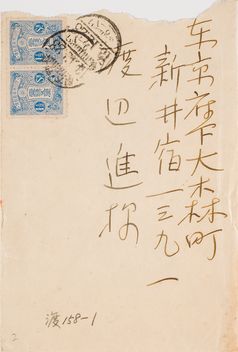 东京府下大森町
新井宿一三九一
渡辺進様
渡158-1
2